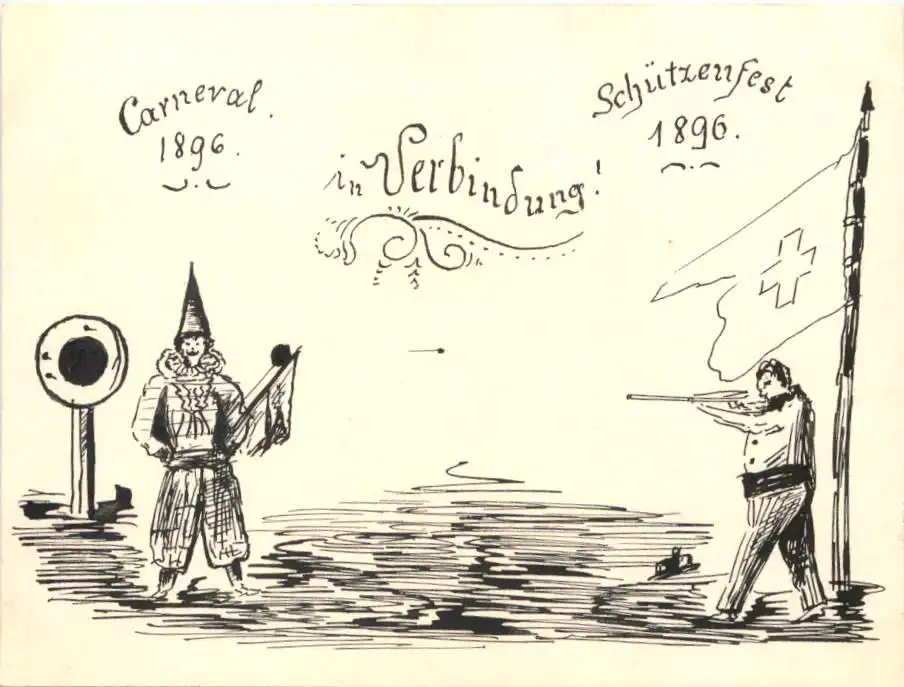 Carneval.
1896.
in Verbindung!
Schützenfest
1896.